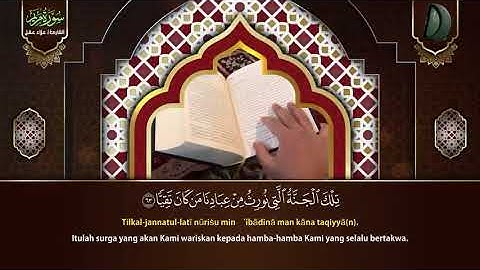 سورة مريم
القارئة: علاء عقل
تِلْكَ الْجَنَّةُ الَّتِي نُورِثُ مِنْ عِبَادِنَا مَنْ كَانَ تَقِيًّا ٦٣
Tilkal-jannatul-latī nūriṡu min ‘ibādinā man kāna taqiyyā(n).
Itulah surga yang akan Kami wariskan kepada hamba-hamba Kami yang selalu bertakwa.